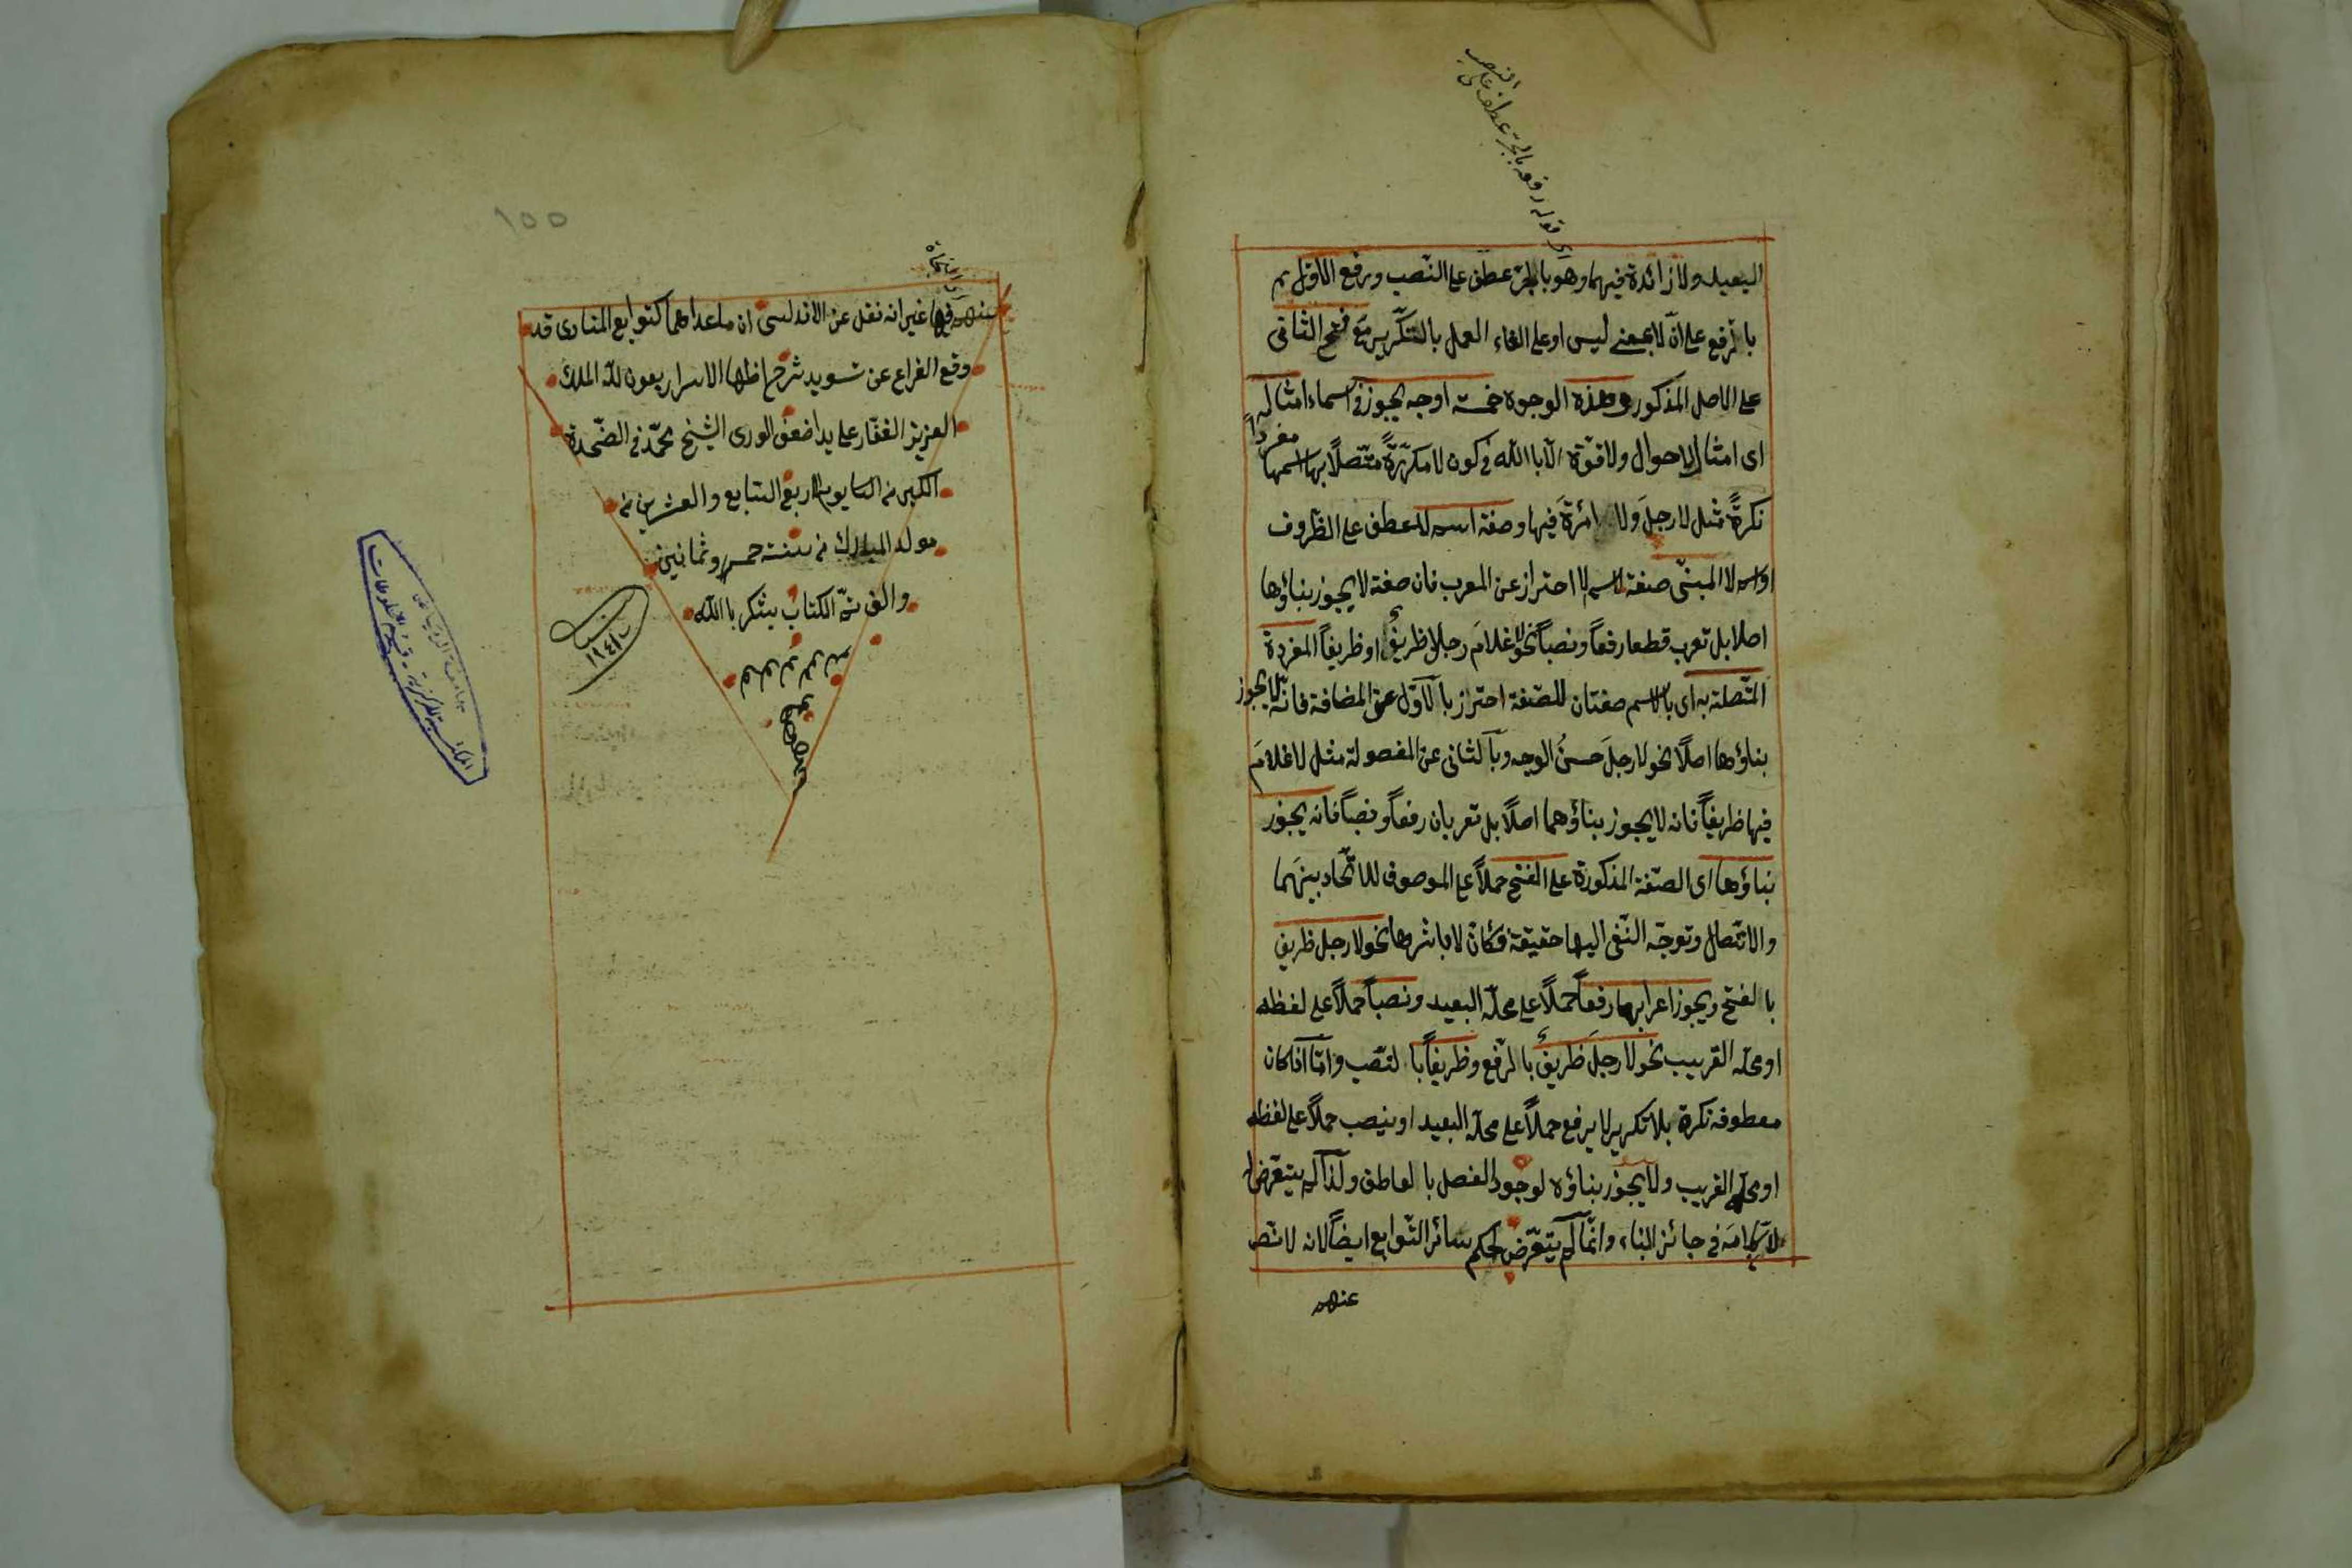 قوله رفعه بالجر عطف على النصب
البعيد ولا زائدة فيهما وهو بالجر عطف على النصب ورفع الاول
بالرفع على انّ لا بمعنى ليس او على الغاء العمل بالتكرير مع فتح الثانى
على الاصل المذكور وهذه الوجوه خمسة اوجه يجوز فى اسماء امثاله
اى امثال لا حول ولا قوّة الّا بالله فى كون لا مكرّرةً متّصلًا بها اسمها مفردا
نكرةً مثل لا رجلَ ولا امرئةَ فيها وصفة اسم لا عطف على الظروف
او اسم لا المبنىّ صفة لاسم لا احتراز عن المعرب فان صفة لا يجوز بناؤها
اصلا بل تعرب قطعا رفعاً ونصباً نحو لا غلامَ رجلٍ ظريفٌ او ظريفاً المفردة
المتّصلة به اى بالاسم صفتان للصّفة احتراز بالاوّل عن المضافة فانّه لا يجوز
بناؤها اصلًا نحو لا رجلَ حسنُ الوجه وبالثانى عن المفصولة مثل لا غلامَ
فيها ظريفاً فانه لا يجوز بناؤهما اصلًا بل تعربان رفعاً ونصباً فانه يجوز
بناؤها اى الصّفة المذكورة على الفتح حملاً على الموصوف للاتّحاد بينهما
والاتّصال وتوجّه النّفى اليها حقيقة فكانّ لا باشرها نحو لا رجل ظريف
بالفتح ويجوز اعرابها رفعاً حملاً على محلّه البعيد ونصباً حملاً على لفظه
او محلّه القريب نحو لا رجلَ ظريفٌ بالرّفع وظريفاً بالنّصب وامّا اذا كان
معطوفه نكرة بلا تكرير لا يرفع حملاً على محلّه البعيد او ينصب حملاً على لفظه
او محلّه القريب ولا يجوز بناؤه لوجود الفصل بالعاطف ولذا لم يتعرّض له
فى جائز البناء وانّما لم يتعرّض لحكم سائر التّوابع ايضاً لانه لا نصّ
عنهم
١٥٥
عنهم فيها غير انه نقل عن الاندلسى ان ما عداهما كتوابع المنادى قد
وقع الفراغ عن تسويد شرح اظهار الاسرار بعون الله الملك
العزيز الغفّار على يد اضعف الورى الشيخ محمّد فى الضّحوة
الكبرى يوم الاربع السّابع والعشرين من
مولد المبارك من سنة خمس وثمانين
والف تمّ الكتاب بشكر بالله
١٩٤١